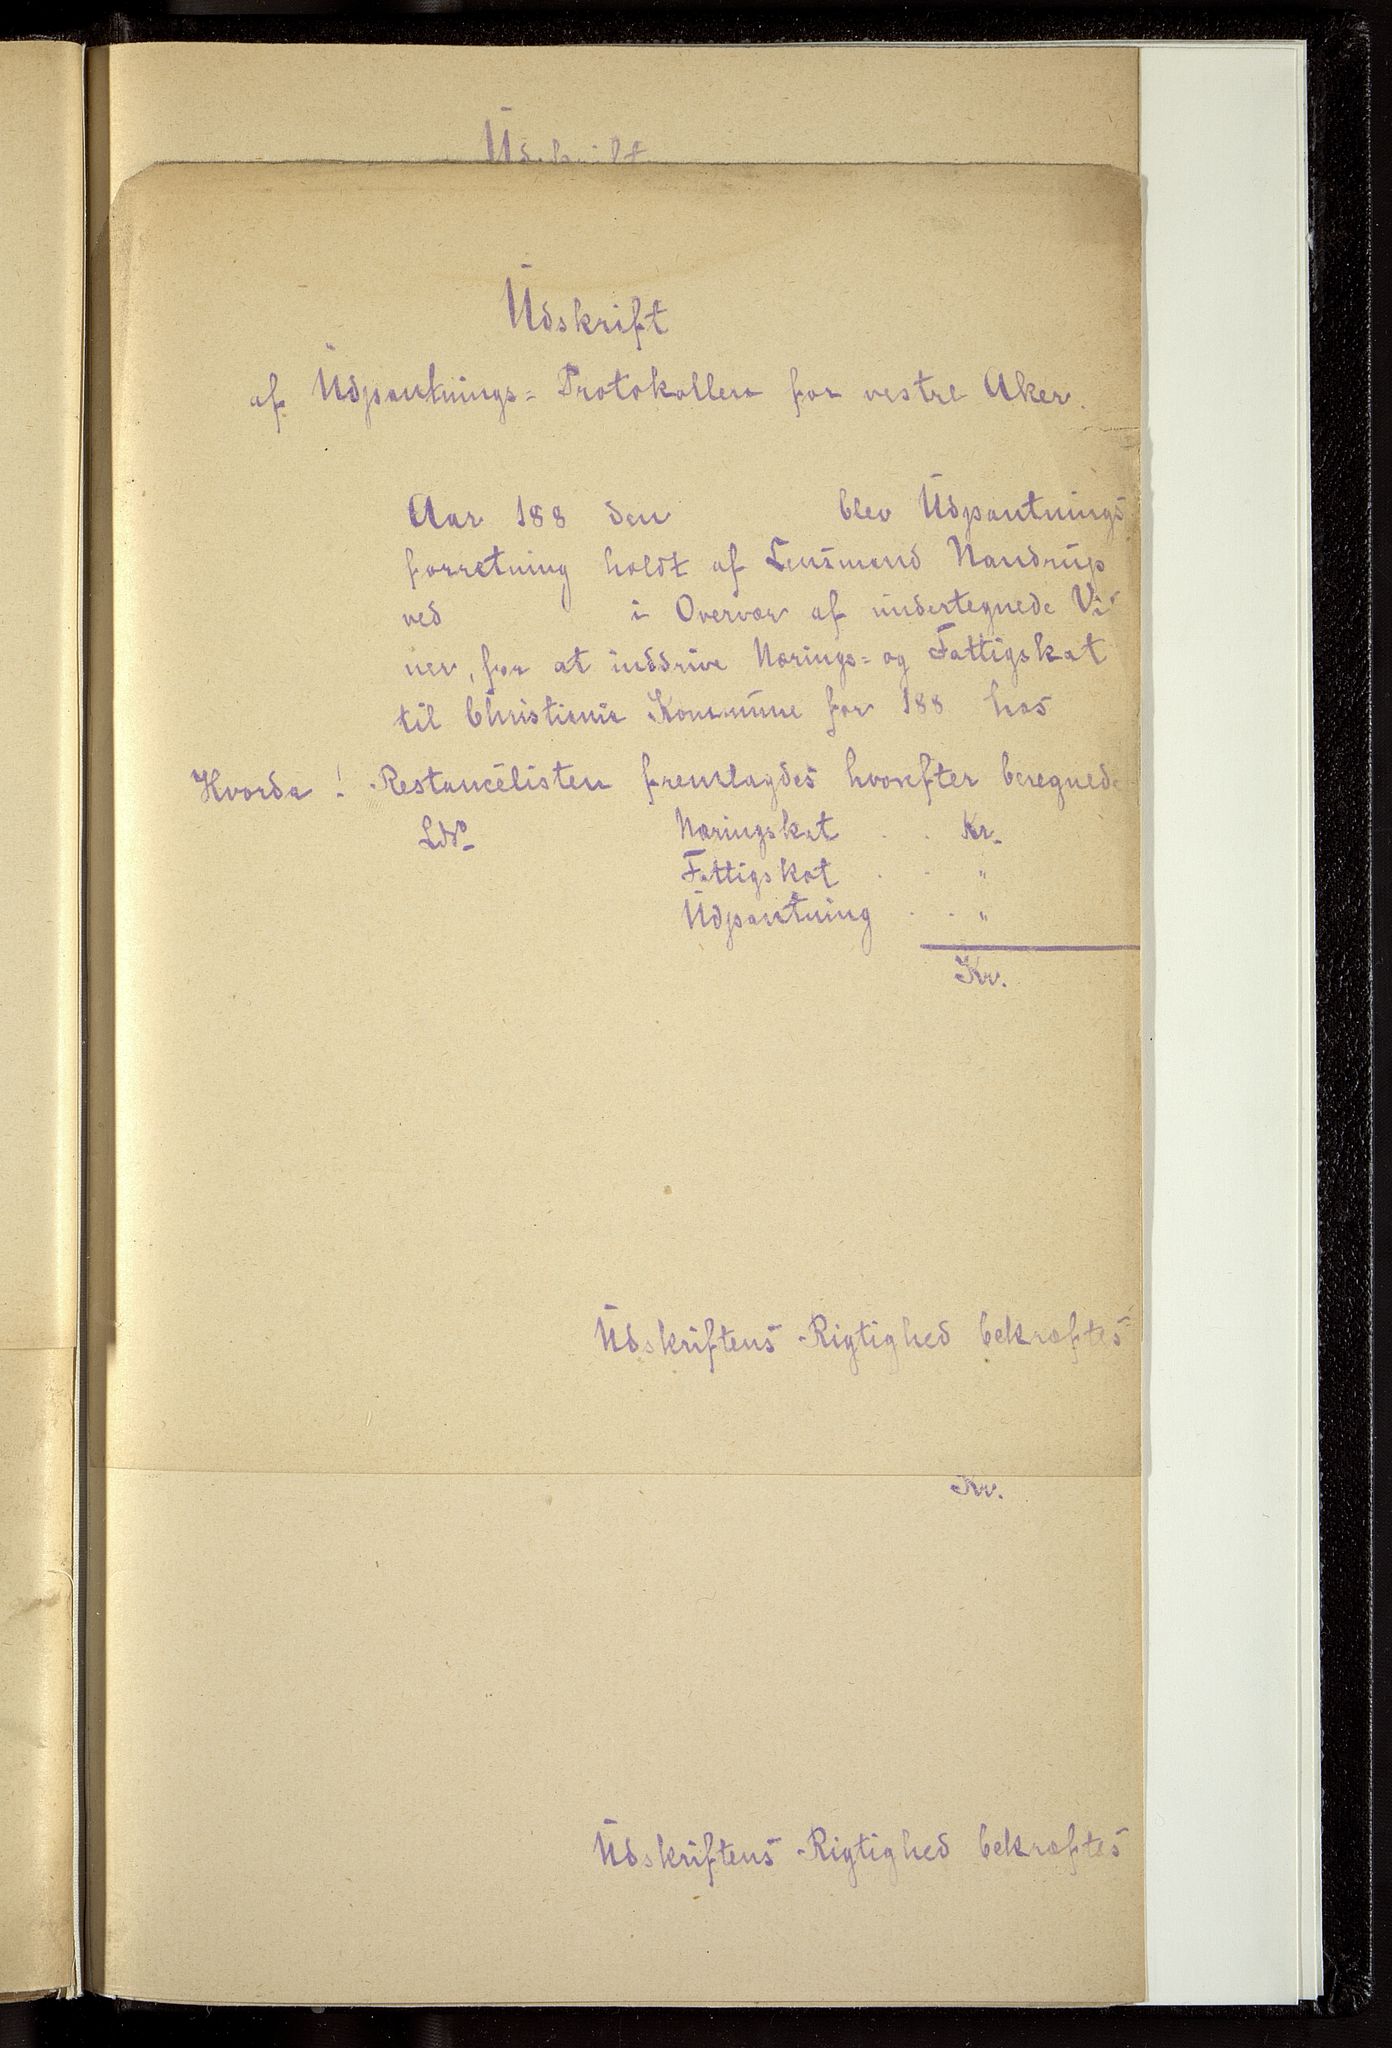 Udskrift
Udskrift
af Udpantnings= Protokollen for vestre Aker.
Aar 188 den blev Udpantnings
forretning holdt af Lensmand Nandrup
ved i Overvær af undertegnede Vi=
ner, for at inddrive Nærings= og Fattigskat
til Christiania Kommune for 188 hos
Hvorda! Restancelisten fremlagdes hvorefter beregnede
LNo Næringskat . . Kr.
Fattigskat . . "
Udpantning . . "
Kr.
Udskriftens Rigtighed bekræftes
Kr.
Udskriftens Rigtighed bekræftes